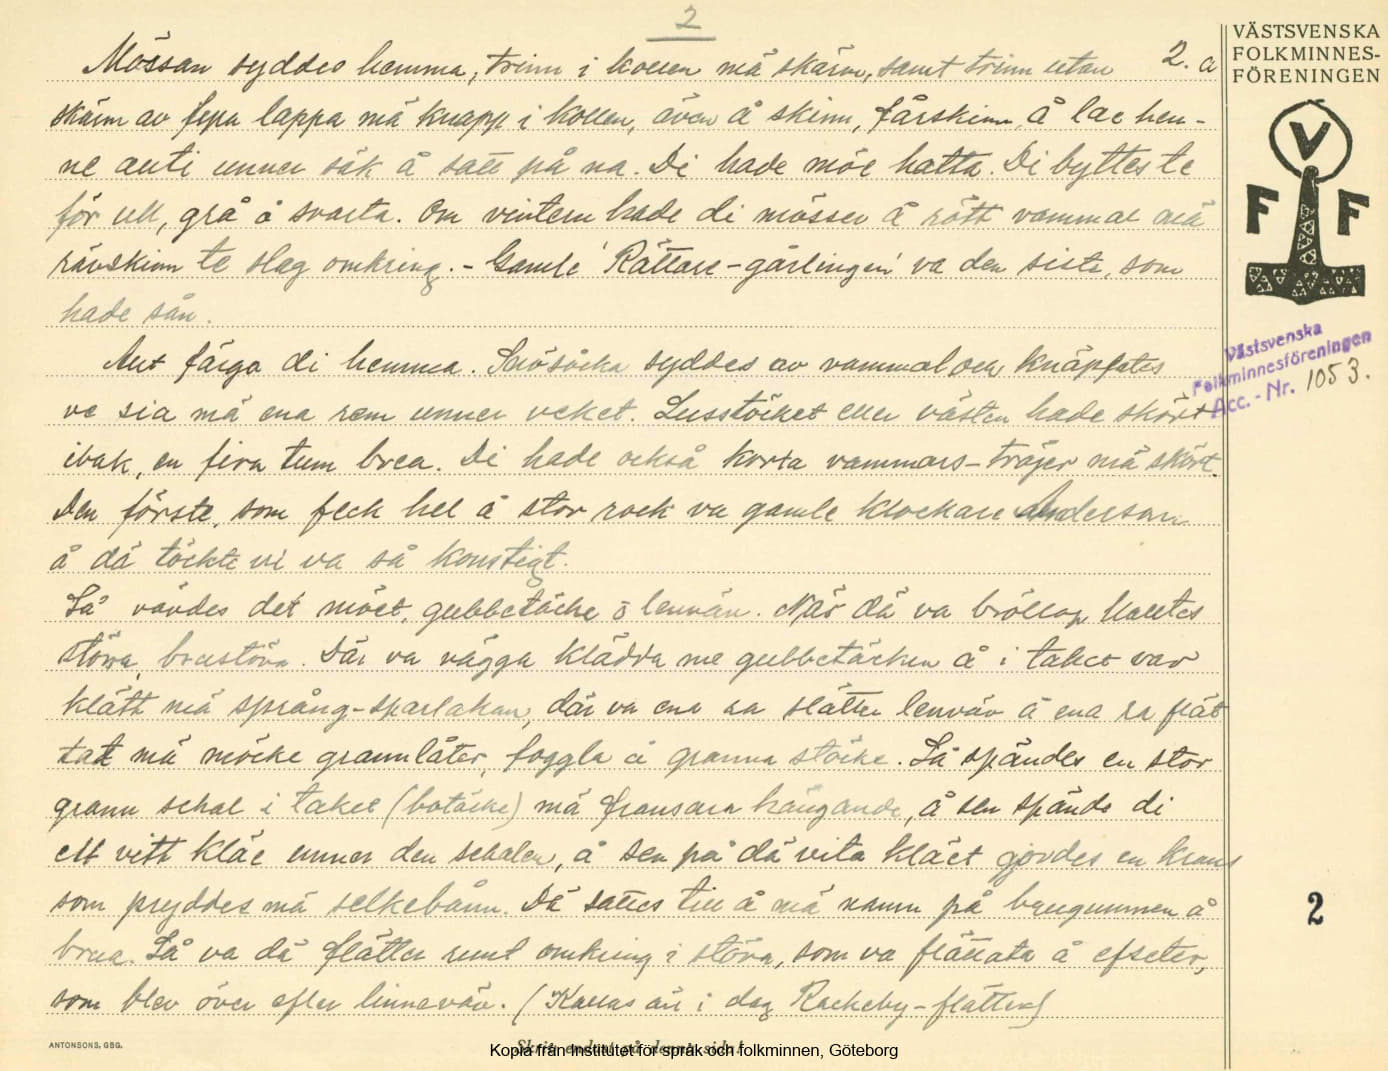 2
VÄSTSVENSKA
FOLKMINNES-
FÖRENINGEN
V
F F
Västsvenska
Folkminnesföreningen
Acc. - Nr. 1053.
2. a
Mössan syddes hemma, trinn i kollen mä skärm, samt trinn utan
skärm av fyra lappa mä knapp i kollen, även å skinn, fårskinn, å lae hen-
ne auti unner säk å satt på na. Di hade möe hatta. Di byttes te
för ull, grå å svarta. Om vintern hade di mösser å rött vammal mä
rävskinn te slag omkring. - Gamle 'Rättare-gårlingen' va den siste, som
hade sån.
Aut färga di hemma. syddes av vammal och knäpptes
ve sia mä ena rem unner veket. Lusstöcket eller västen hade skört
ibak, en fira tum brea. Di hade också korta vammars-tröjer mä skört.
Den förste, som feck hel å stor rock va gamle klockare Anderson
å dä töckte vi va så konstigt.
Så vävdes det möet, gubbetäcke o lenvän. När dä va bröllop kalltes
störa, brustöva. Där va vägga klädda me gubbetäcken å i taket var
klätt mä språng-sparlakan, där va ena ra slätter lenväv å ena ra flät
tat mä möcke grannlåter, foggla å granna stöcke. Så spändes en stor
grann schal i taket (botäcke) mä fransara hängande, å sen spände di
ett vitt kläe unner den schalen, å sen på dä vita kläet gjordes en krans
som pryddes mä selkebånn. Dä sattes till å mä namn på brugummen å
brua. Så va dä flätter runt omkring i störa, som va flätata å efseter,
som blev över efter linneväv. (Kallas än i dag Rackeby-flätter)
2
ANTONSONS, GBG.
Skriv endast på denna sida!
Kopia från Institutet för språk och folkminnen, Göteborg